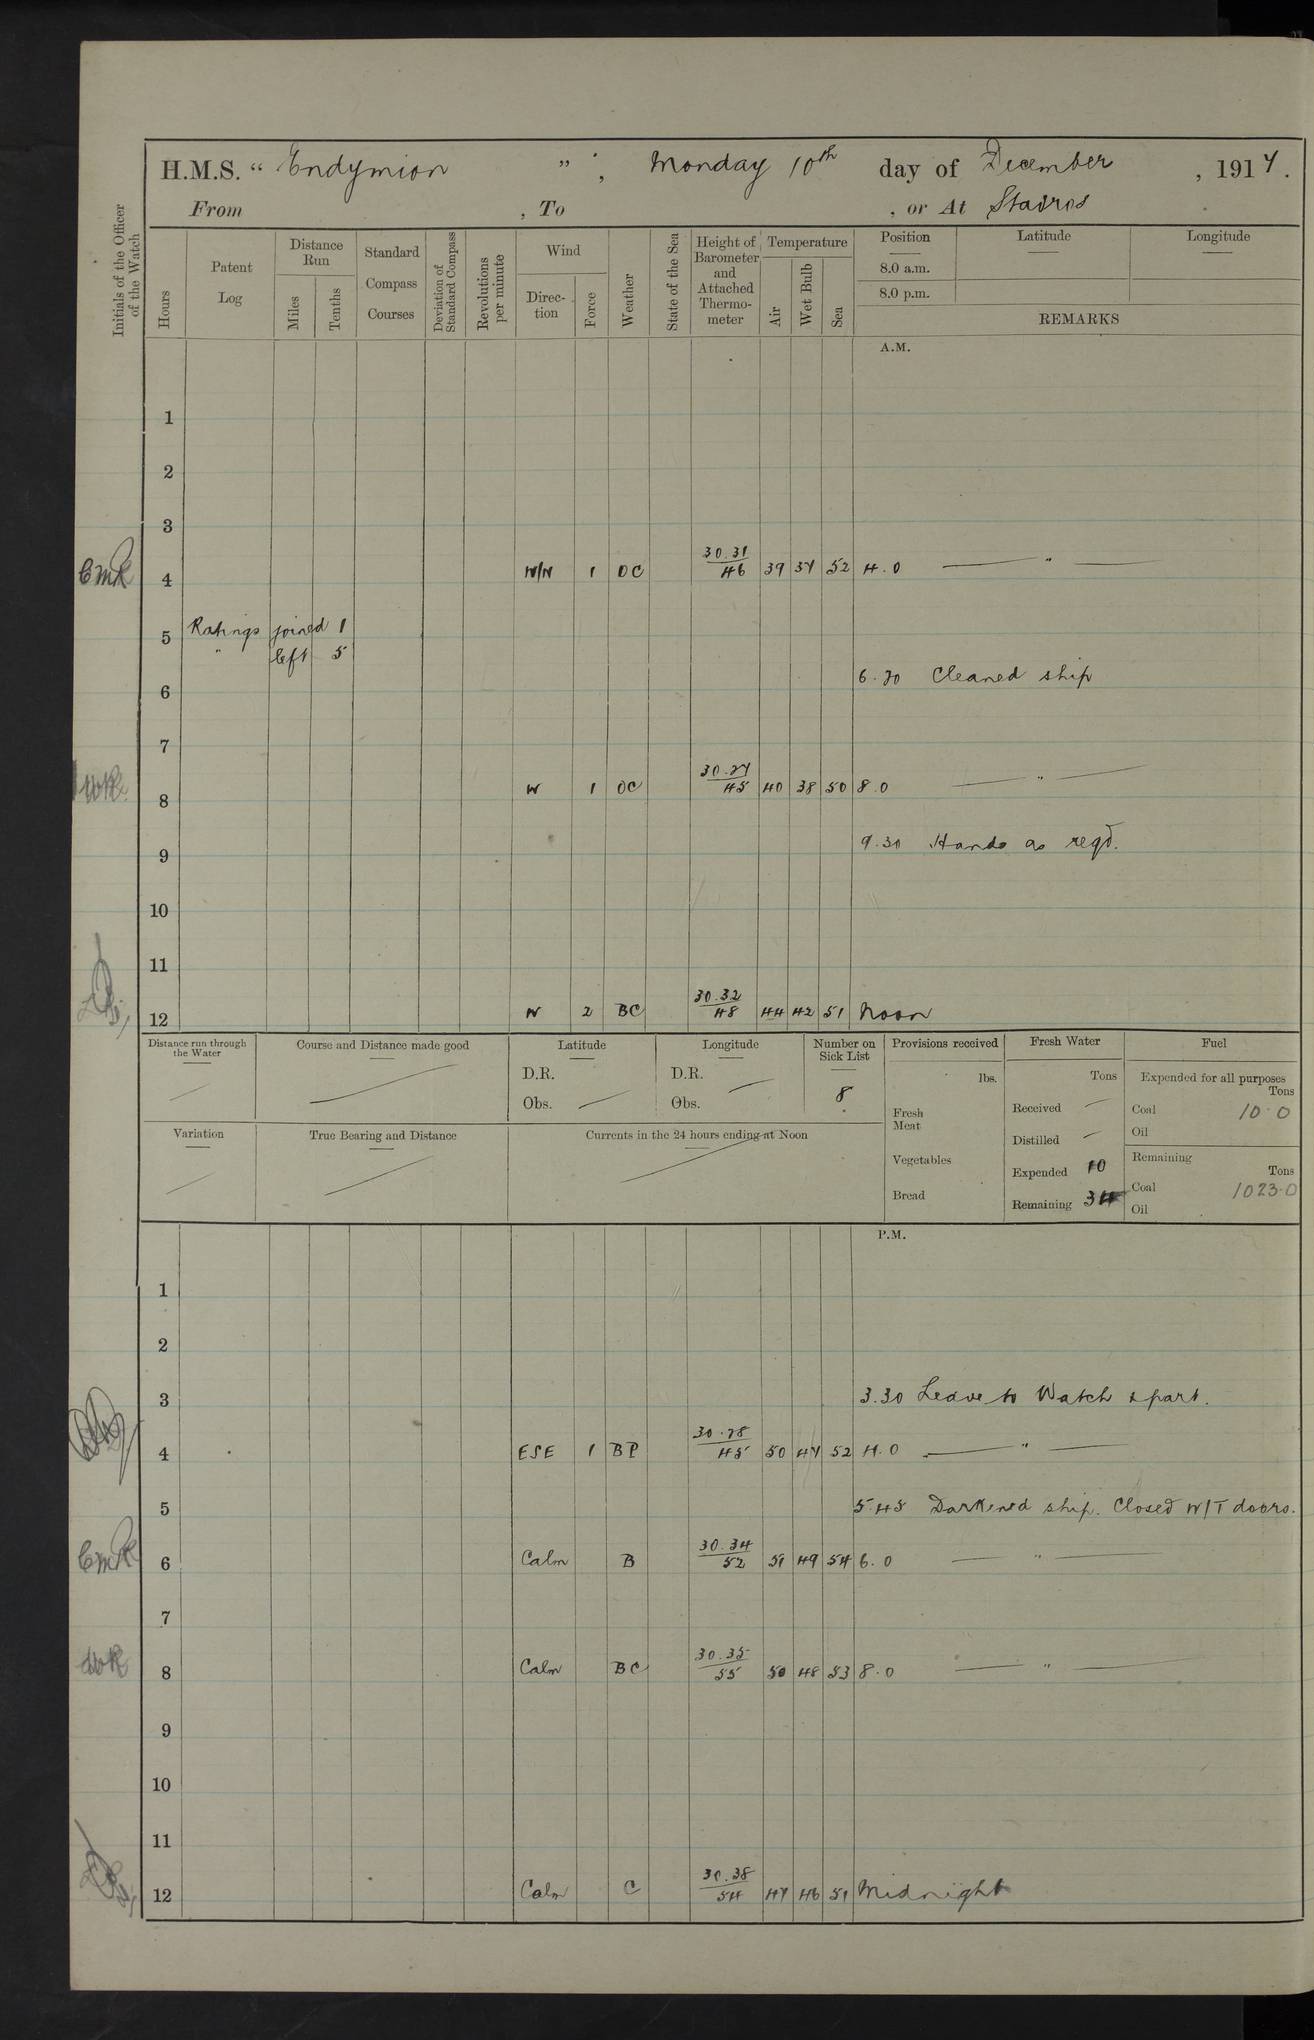 H.M.S. “ Endymion ” ; Monday 10th day of December , 1917 .
From , To , or At Stavros
Initials of the Officer of the Watch
Hours
Patent Log
Distance Run
Miles
Tenths
Standard Compass Courses
Deviation of Standard Compass
Revolutions per minute
Wind
Direc-tion
Force
Weather
State of the Sea
Height of Barometer and Attached Thermo-meter
Temperature
Air
Wet Bulb
Sea
Position
Latitude
Longitude
8.0 a.m.
8.0 p.m.
REMARKS
A.M.
1
2
3
CMR 4 W/N 1 OC 30.31/46 39 37 52 4.0 — " —
5 Ratings joined 1
" left 5
6 6.30 Cleaned ship
7
8 W 1 OC 30.27/45 40 38 50 8.0 — " —
9 9.30 Hands as reqd.
10
11
12 W 2 BC 30.32/48 44 42 51 Noon
Distance run through the Water
Course and Distance made good
Latitude
D.R.
Obs.
Longitude
D.R.
Obs.
Number on Sick List
8
Variation
True Bearing and Distance
Currents in the 24 hours ending at Noon
Provisions received
lbs.
Fresh Meat
Vegetables
Bread
Fresh Water
Tons
Received —
Distilled —
Expended 10
Remaining 34
Fuel
Expended for all purposes
Tons
Coal 10.0
Oil
Remaining
Tons
Coal 1023.0
Oil
P.M.
1
2
3 3.30 Leave to Watch & part.
4 ESE 1 BP 30.28/45 50 47 52 4.0 — " —
5 5.45 Darkened ship. Closed W/T doors.
CMR 6 Calm B 30.34/52 51 49 54 6.0 — " —
7
8 Calm BC 30.35/55 50 48 53 8.0 — " —
9
10
11
12 Calm C 30.38/54 47 46 51 Midnight